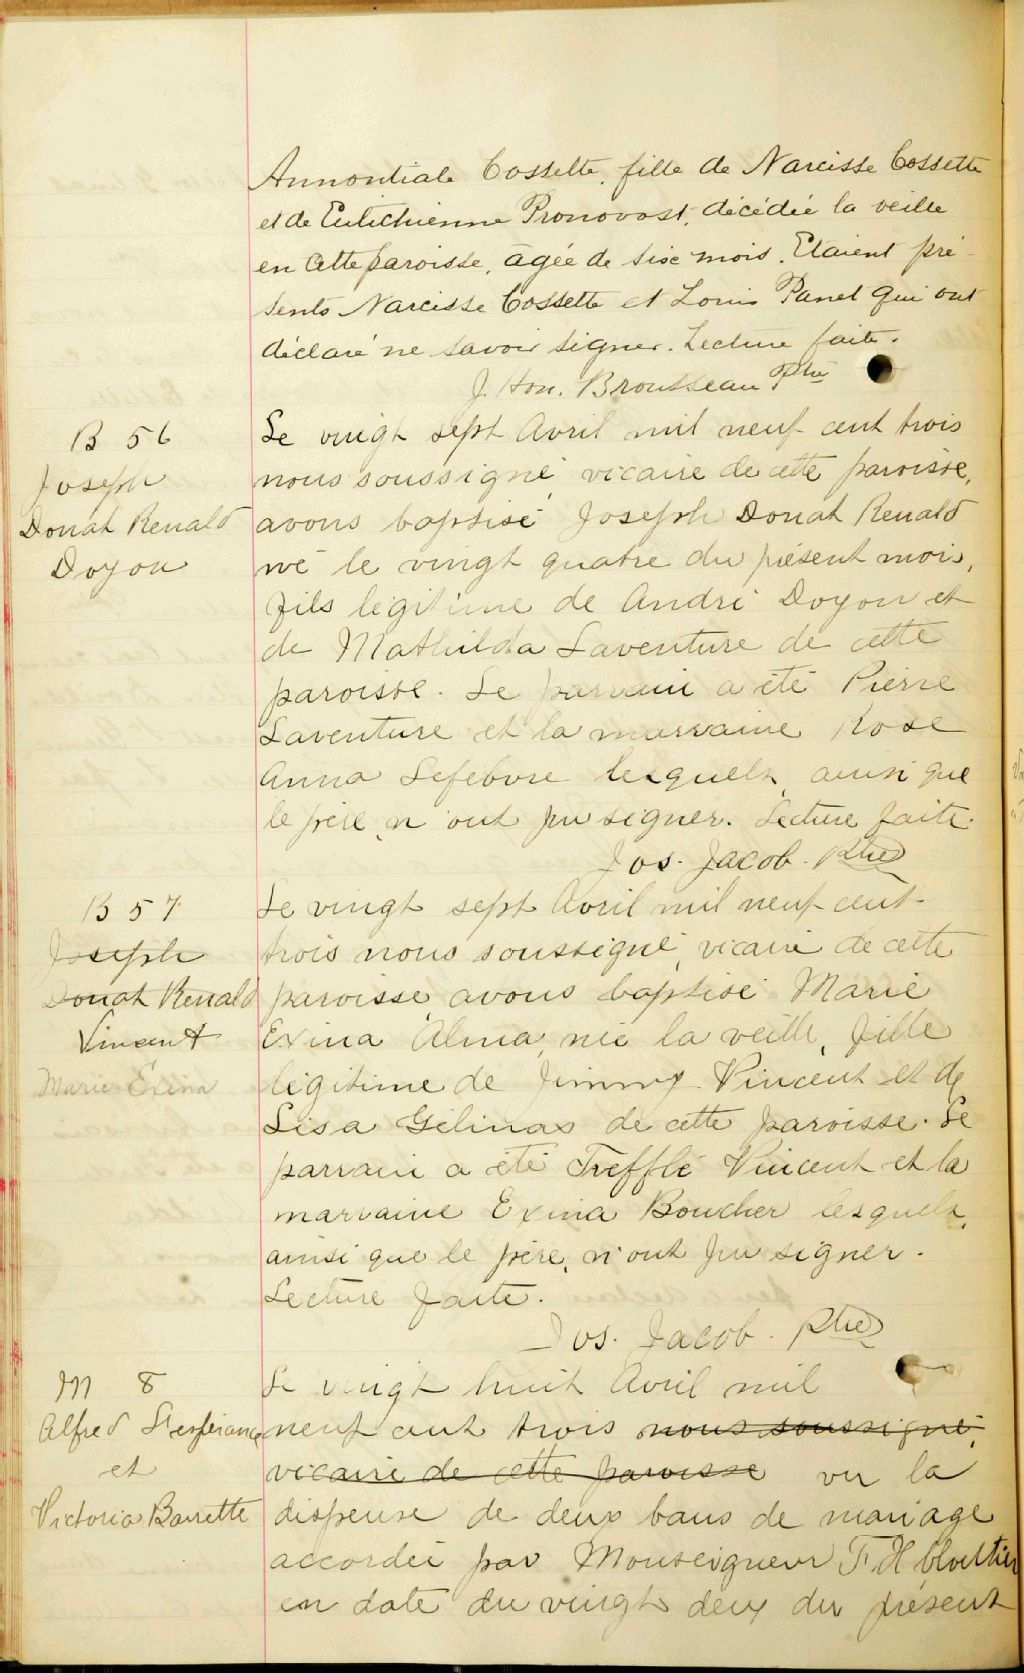 Annontiale Cossette, fille de Narcisse Cossette
et de Eutichienne Pronovost, décédée la veille
en cette paroisse, agée de six mois. Etaient pré-
sents Narcisse Cossette et Louis Panet qui ont
déclaré ne savoir signer. Lecture faite.
J. Hon. Brousseau Ptre
B 56
Joseph
Donat Renald
Doyon
Le vingt sept Avril mil neuf cent trois
nous soussigné, vicaire de cette paroisse,
avons baptisé Joseph Donat Renald
né le vingt quatre du présent mois,
fils légitime de André Doyon et
de Mathilda Laventure de cette
paroisse. Le parrain a été Pierre
Laventure et la marraine Rose
Anna Lefebvre lesquels, ainsi que
le père, n'ont pu signer. Lecture faite.
Jos. Jacob. Ptre
B 57
Joseph
Donat Renald
Vincent
Marie Exina
Le vingt sept Avril mil neuf cent
trois nous soussigné, vicaire de cette
paroisse avons baptisé Marie
Exina Alma, née la veille, fille
légitime de Jimmy Vincent et de
Lisa Gélinas de cette paroisse. Le
parrain a été Trefflé Vincent et la
marraine Exina Boucher lesquels,
ainsi que le père, n'ont pu signer.
Lecture faite.
Jos. Jacob. Ptre
M 8
Alfred Lesperance
et
Victoria Barrette
Le vingt huit Avril mil
neuf cent trois nous soussigné,
vicaire de cette paroisse vu la
dispense de deux bans de mariage
accordée par Monseigneur F X Cloutier
en date du vingt deux du présent